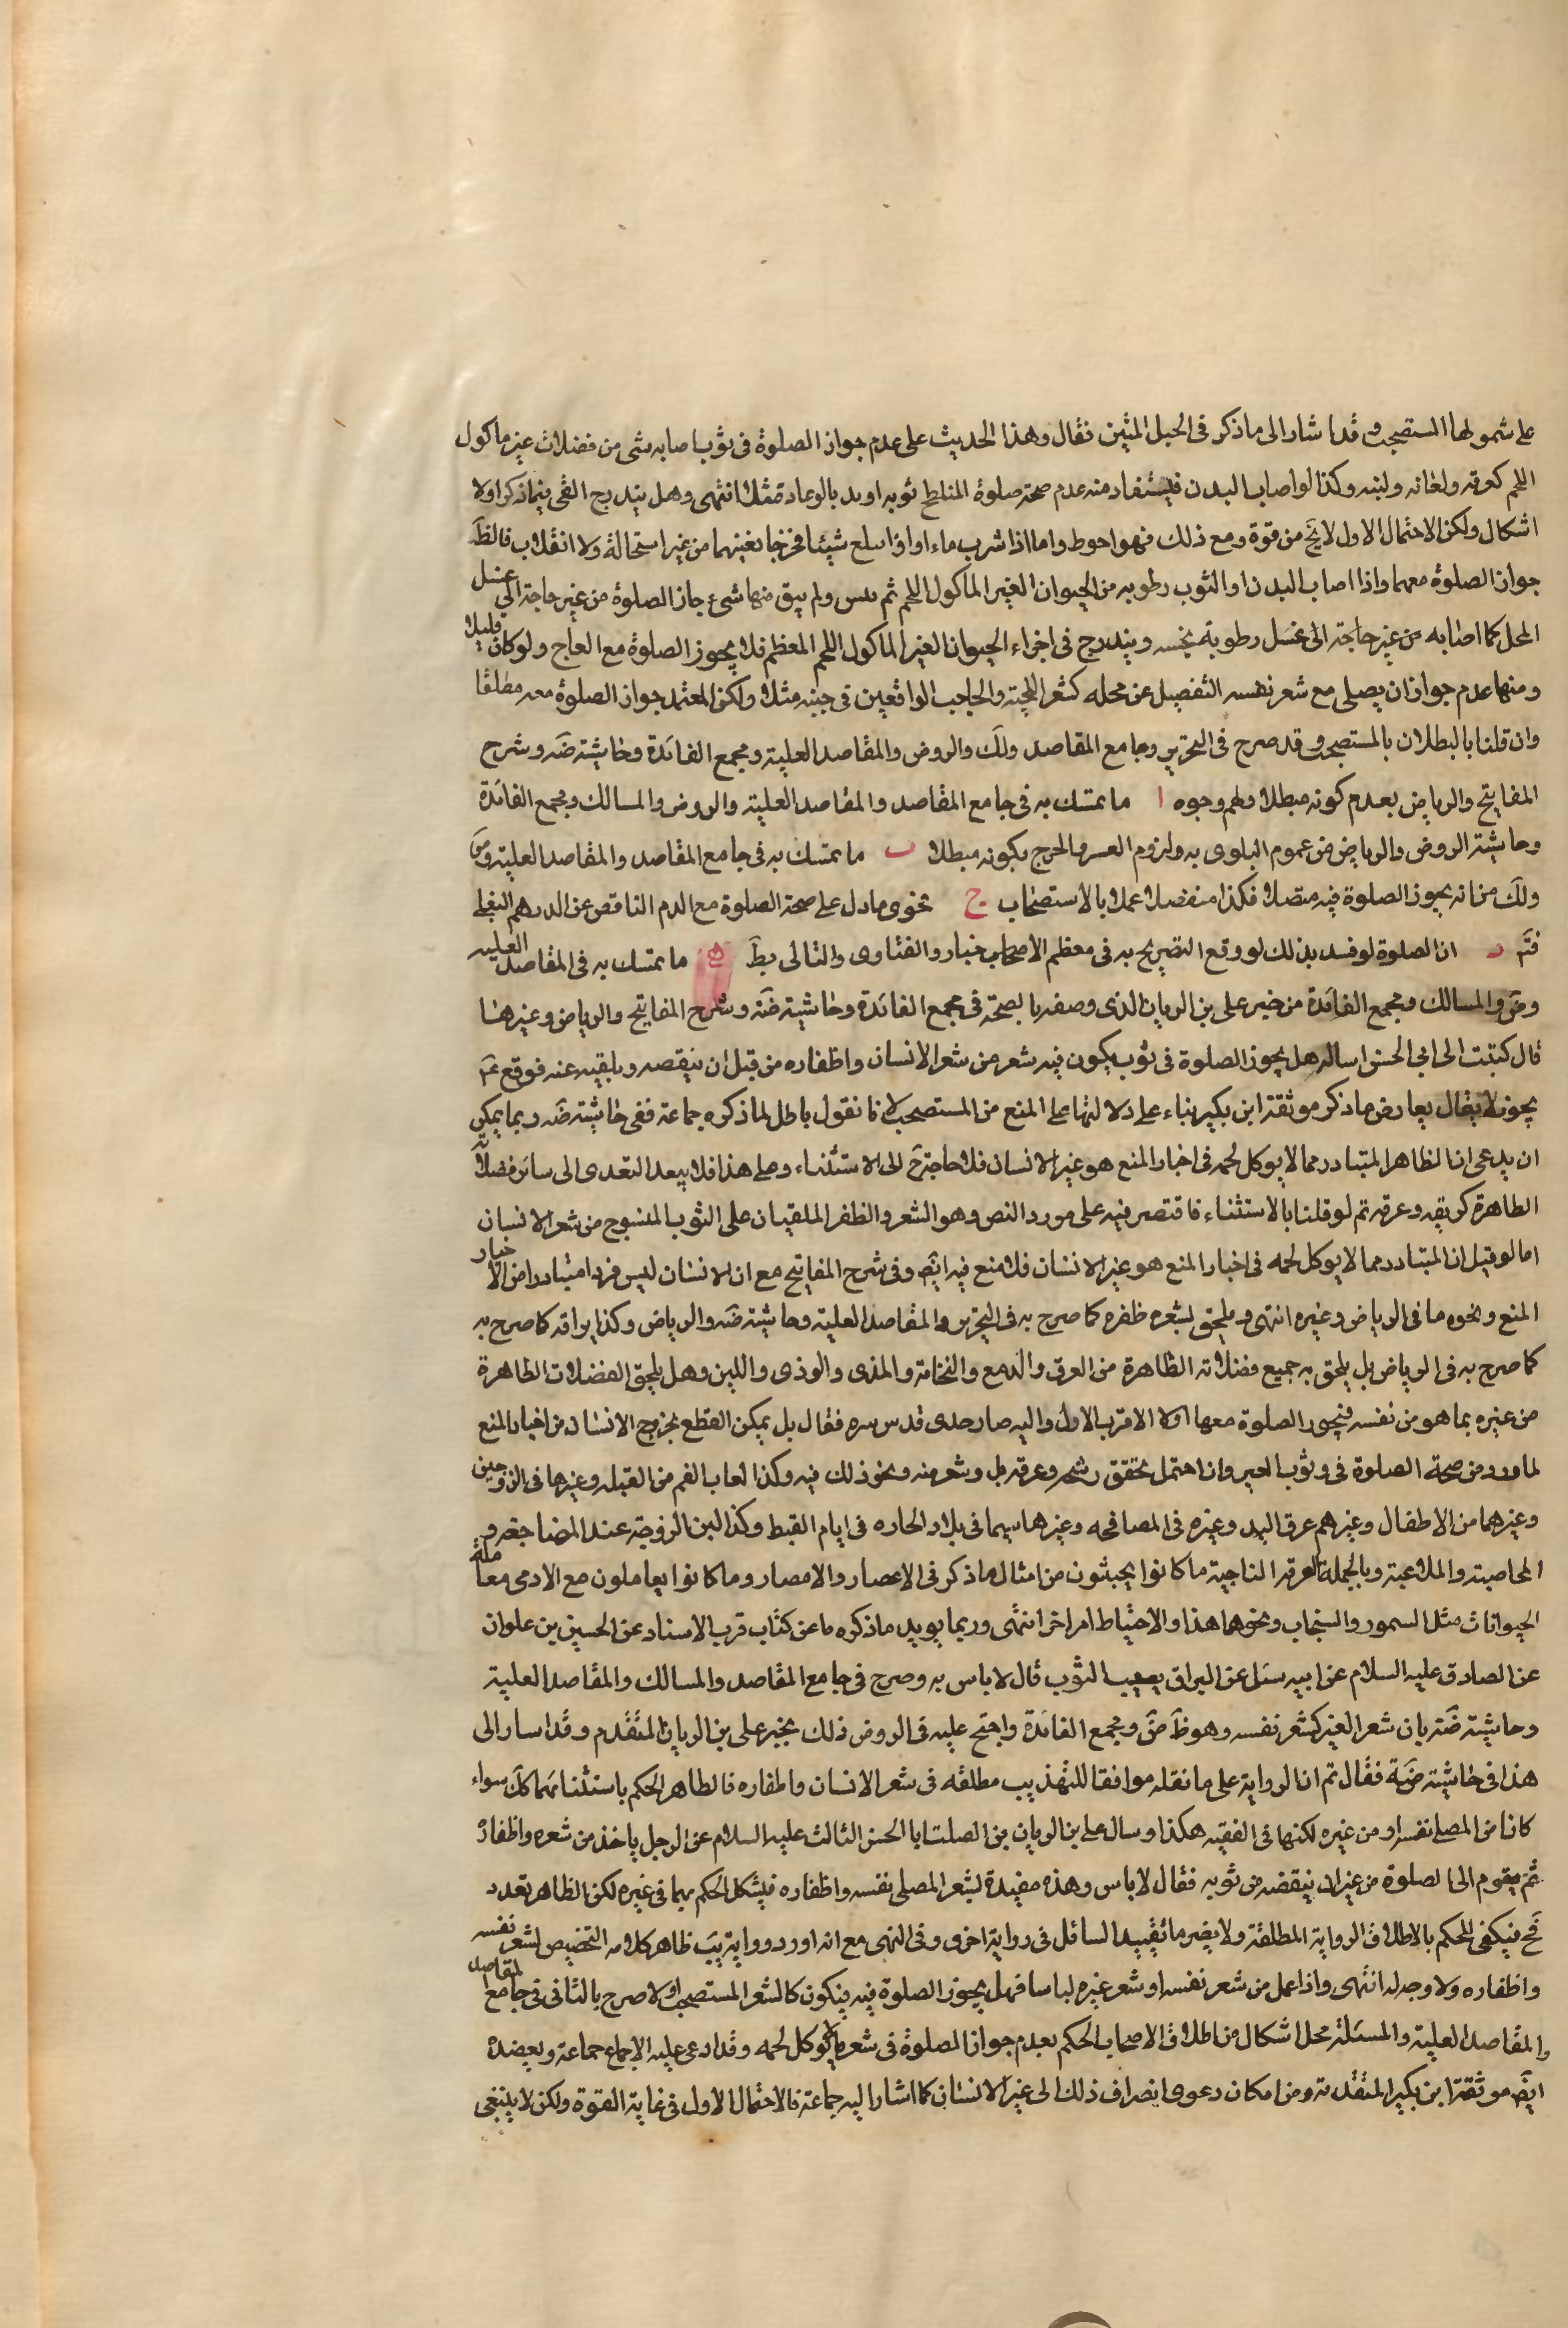 على شمولها المستصحب وقد اشار الى ما ذكر فى الحبل المتين فقال وهذا الحديث على عدم جواز الصلوة فى ثوب اصابه شى من فضلات غير ماكول
اللحم كعرقه ولعابه ولبنه وكذا لو اصاب البدن فيستفاد منه عدم صحة صلوة المتلطخ ثوبه او بدنه بالزباد مثلا انتهى وهل يندرج القى فيما ذكر اولا
اشكال ولكن الاحتمال الاول لا يخ من قوة ومع ذلك فهو احوط واما اذا شرب ماء او اذا بلع شيئا فخرجا بعينهما من غير استحالة ولا انقلاب فالظَ
جواز الصلوة معهما واذا اصاب البدن او الثوب رطوبه من الحيوان الغير الماكول اللحم ثم يبس ولم يبق منها شئ جاز الصلوة من غير حاجة الى غسل
المحل كما اصابه من غير حاجة الى غسل رطوبة نجسه ويندرج فى اجزاء الحيوان الغير الماكول اللحم المعظم فلا يجوز الصلوة مع العاج ولو كان قليلا
ومنها عدم جواز ان يصلى مع شعر نفسه المنفصل عن محله كشعر اللحية والحاجب الواقعين فى جيبه مثلا ولكن المعتمد جواز الصلوة معه مطلقا
وان قلنا بالبطلان بالمستصحب وقد صرح فى التحرير وجامع المقاصد ولك والروض والمقاصد العلية ومجمع الفائدة وحاشيته ضَه وشرح
المفاتيح والرياض بعدم كونه مبطلا ولهم وجوه ا ما تمسك به فى جامع المقاصد والمقاصد العلية والروض والمسالك ومجمع الفائدة
وحاشية الروض والرياض من عموم البلوى به ولزوم العسر والحرج بكونه مبطلا ب ما تمسك به فى جامع المقاصد والمقاصد العلية وضَ
ولك من انه يجوز الصلوة فيه متصلا فكذا منفصلا عملا بالاستصحاب ج فحوى ما دل على صحة الصلوة مع الدم الناقص عن الدرهم البغلى
فتَم د ان الصلوة لو فسد بذلك لو وقع التصريح به فى معظم الاخبار والفتاوى والتالى بطَ ه ما تمسك به فى المقاصد العليه
وضَ والمسالك ومجمع الفائدة من خبر على بن الريان الذى وصفه بالصحة فى مجمع الفائدة وحاشية ضَه وشرح المفاتيح والرياض وغيرها
قال كتبت الى ابى الحسن اساله هل يجوز الصلوة فى ثوب يكون فيه شعر من شعر الانسان واظفاره من قبل ان ينفضه ويلقيه عنه فوقع عَم
يجوز لا يقال يعارض ما ذكر موثقة ابن بكير بناء على دلالتها على المنع من المستصحب لانا نقول باطل لما ذكره جماعة ففى حاشية ضَه ربما يمكن
ان يدعى ان الظاهر المتبادر مما لا يوكل لحمه فى اخبار المنع هو غير الانسان فلا حاجة ح الى الاستثناء وعلى هذا فلا يبعد التعدى الى سائر فضلاته
الطاهرة كريقه وعرقه ثم لو قلنا بالاستثناء فاقتصر فيه على مورد النص وهو الشعر والظفر الملقيان على الثوب المنسوج من شعر الانسان
اما لو قيل ان المتبادر مما لا يوكل لحمه فى اخبار المنع هو غير الانسان فلا منع فيه ايضَ وفى شرح المفاتيح مع ان الانسان ليس فردا متبادرا من الاخبار
المنع ونحوه ما فى الرياض وغيره انتهى ويلحق بشعره ظفره كما صرح به فى التحرير والمقاصد العلية وحاشية ضَه والرياض وكذا بزاقه كما صرح به
كما صرح به فى الرياض بل يلحق به جميع فضلاته الطاهرة من العرق والدمع والنخامة والمذى والوذى واللبن وهل يلحق الفضلات الطاهرة
من غيره بما هو من نفسه فيجوز الصلوة معها اولا الاقرب الاول واليه صار جدى قدس سره فقال بل يمكن القطع بخروج الانسان من اخبار المنع
لما ورد من صحة الصلوة فى ثوب الغير وان احتمل تحقق رشحه وعرقه بل وشعر منه ونحو ذلك فيه وكذا لعاب الفم من القبله وغيرها فى الزوجين
وغيرهما من الاطفال وغيرهم عرق اليد وغيره فى المصافحه وغيرها سيما فى بلاد الحاره فى ايام القيظ وكذا لبن الزوجة عند المضاجعه و
المحاصبة والملاعبة وبالجملة الفرقه الناجية ما كانوا يجتنبون من امثال ما ذكر فى الاعصار والامصار وما كانوا يعاملون مع الادمى معاملة
الحيوانات مثل السمور والسنجاب ونحوهما هذا والاحتياط امر اخر انتهى وربما يويد ما ذكره ما عن كتاب قرب الاسناد عن الحسين بن علوان
عن الصادق عليه السلام عن ابيه سئل عن البزاق يصيب الثوب قال لا باس به وصرح فى جامع المقاصد والمسالك والمقاصد العلية
وحاشية ضَه بان شعر الغير كشعر نفسه وهو ظَ ضَ ومجمع الفائدة واحتج عليه فى الروض ذلك بخبر على بن الريان المتقدم وقد اسار الى
هذا فى حاشية ضَه فقال ثم ان الرواية على ما نقله موافقا للتهذيب مطلقه فى شعر الانسان واظفاره فالظاهر الحكم باستثنائهما كلَ سواء
كانا من المصلى نفسه او من غيره لكنها فى الفقيه هكذا وسال على بن الريان بن الصلت ابا الحسن الثالث عليه السلام عن الرجل ياخذ من شعره واظفاره
ثم يقوم الى الصلوة من غير ان ينفضه من ثوبه فقال لا باس وهذه مفيدة لشعر المصلى نفسه واظفاره فيشكل الحكم بهما فى غيره لكن الظاهر تعدد
فح فيكفى للحكم بالاطلاق الرواية المطلقة ولا يضر ما تقييد السائل فى رواية اخرى وفى النهى مع انه اورد رواية يبَ ظاهر كلامه التخصيص لشعر نفسه
واظفاره ولا وجه له انتهى واذا عمل من شعر نفسه او شعر غيره لباسا فهل يجوز الصلوة فيه فيكون كالشعر المستصحب او لا صرح بالثانى فى جامع المقاصد
والمقاصد العلية والمسئلة محل اشكال من اطلاق الاصحاب الحكم بعدم جواز الصلوة فى شعر ما لا يوكل لحمه وقد ادعى عليه الاجماع جماعة ويعضده
ايضَ موثقة ابن بكير المتقدمة ومن امكان دعوى انصراف ذلك الى غير الانسان كما اشار اليه جماعة فالاحتمال الاول فى غاية القوة ولكن لا ينبغى